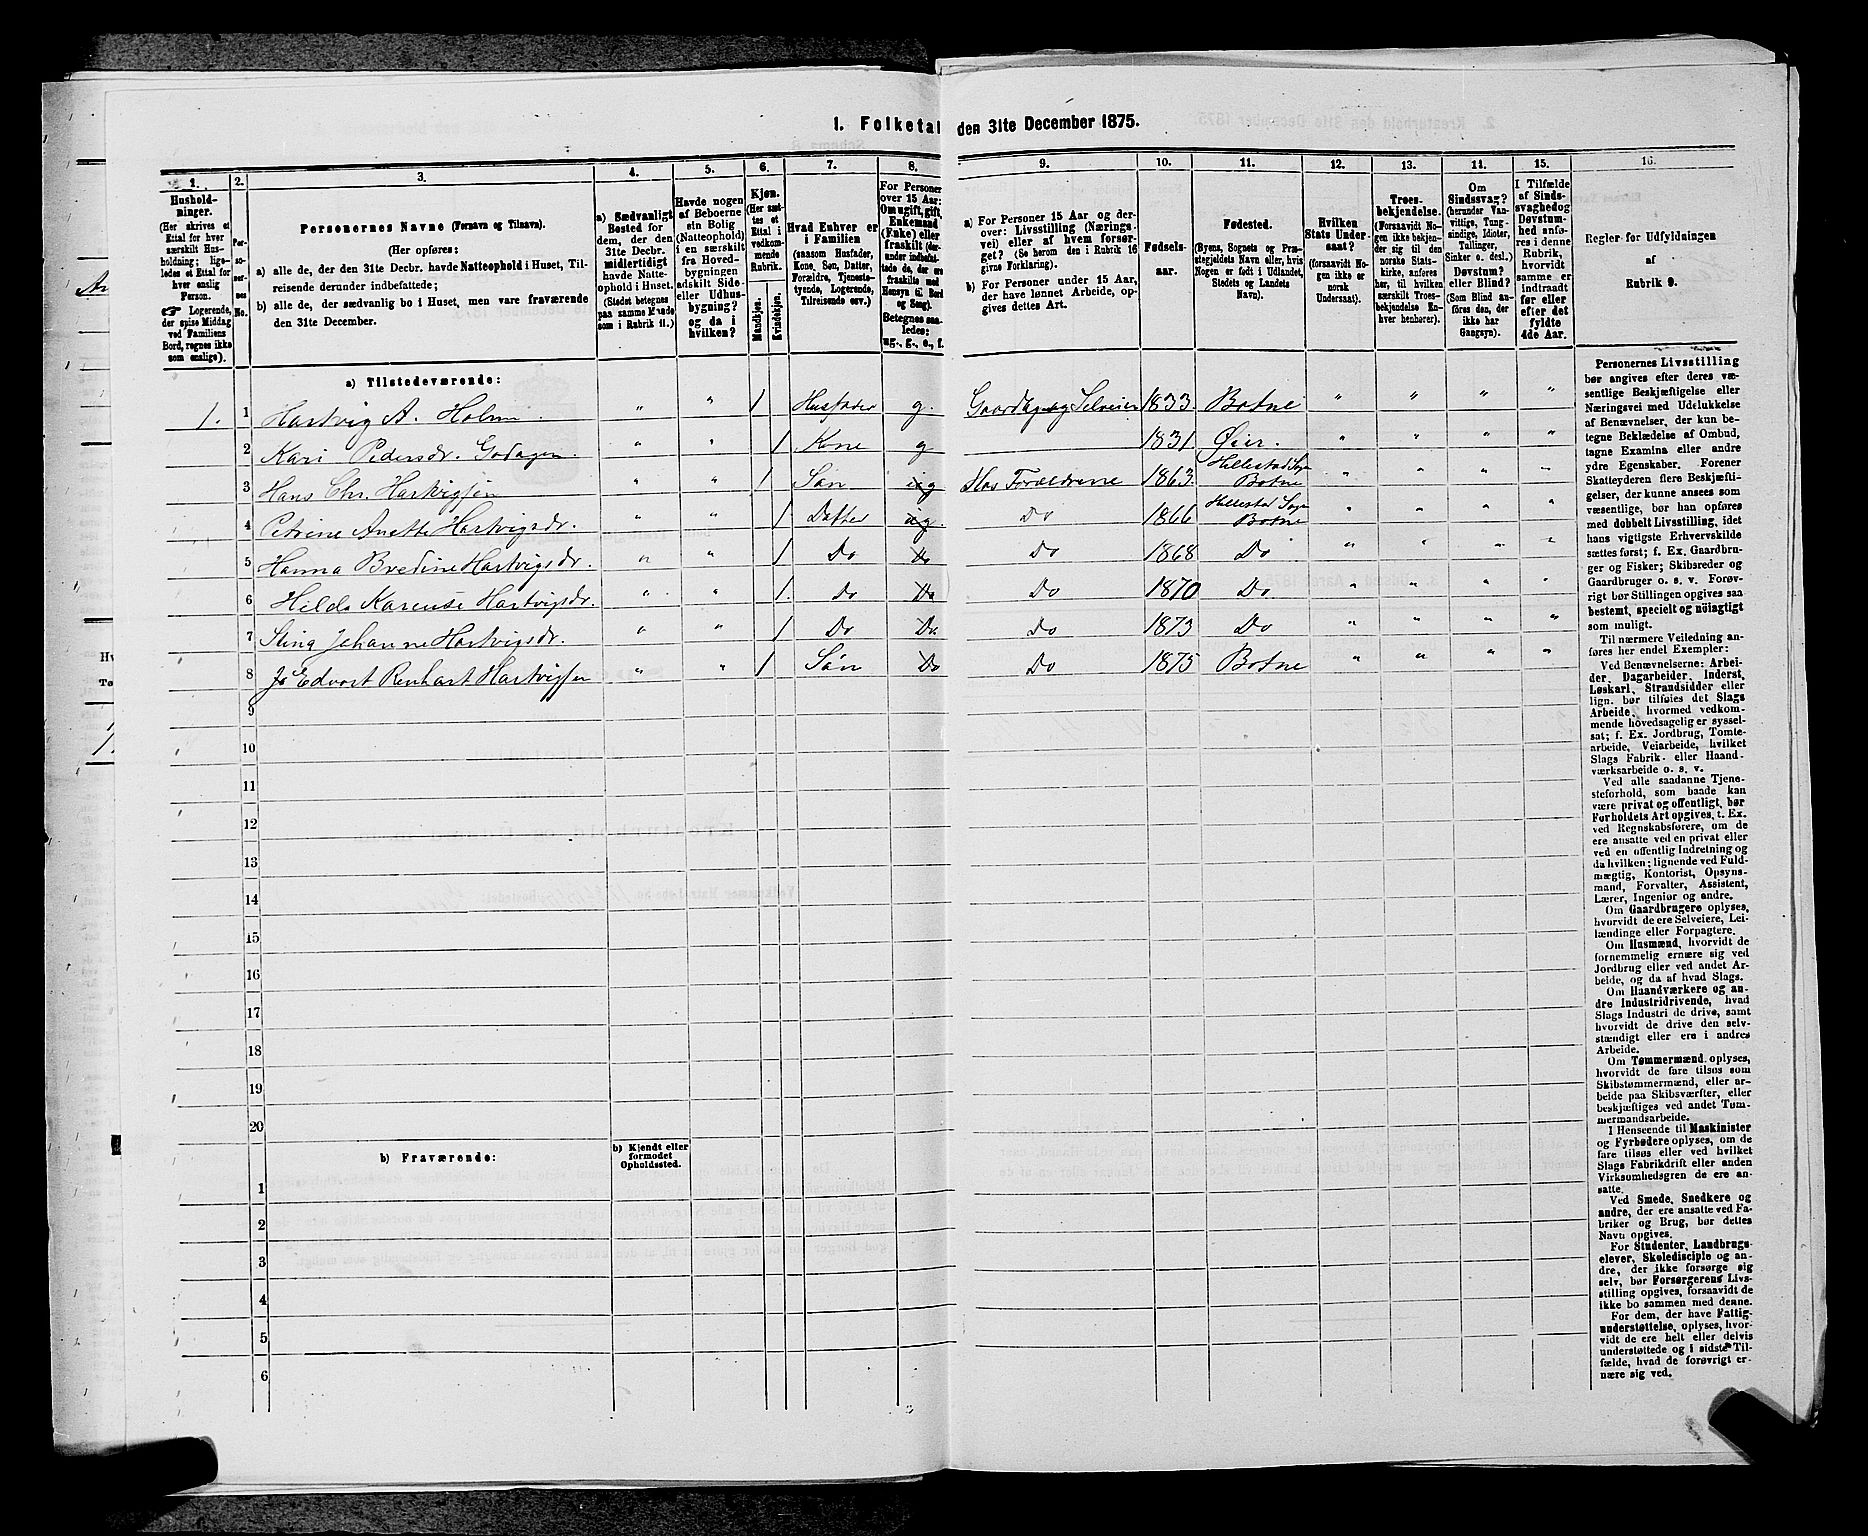 1. Folketal den 31te December 1875.
1. 2. 3. 4. 5. 6. 7. 8. 9. 10. 11. 12. 13. 14. 15. 16.
Hushold-
ninger.
(Her skrives et
Ettal for hver
særskilt Hus-
holdning; lige-
ledes et Ettal for
hver enslig
Person.
Logerende,
der spise Middag
ved Familiens
Bord, regnes ikke
som enslige).
Per-
so-
ner-
nes
No.
Personernes Navne (Fornavn og Tilnavn).
(Her opføres;
a) alle de, der den 31te Decbr. havde Natteophold i Huset, Til-
reisende derunder indbefattede;
b) alle de, der sædvanlig bo i Huset, men vare fraværende
den 31te December.
a) Sædvanligt
Bosted for
dem, der den
31te Decbr.
midlertidigt
havde Natte-
ophold i Huset.
(Stedet betegnes
paa samme Maade
som i Rubrik 11.)
Havde nogen
af Beboerne
sin Bolig
(Natteophold)
i en særskilt
fra Hoved-
bygningen
adskilt Side-
eller Udhus-
bygning?
og da i
hvilken?
Kjøn.
(Her sæt-
tes et
Ettal i
vedkom-
mende
Rubrik.
Mandkjøn.
Kvindekjøn.
Hvad Enhver er
i Familien
(saasom Husfader,
Kone, Søn, Datter,
Forældre, Tjeneste-
tyende, Logerende,
Tilreisende osv.)
For Personer
over 15 Aar:
Om ugift, gift,
Enkemand
(Enke) eller
fraskilt (der-
under indbefat-
tede de, der ere
fraskilte med
Hensyn til Bord
og Seng).
Betegnes saa-
ledes:
ug., g., e., f.
a) For Personer 15 Aar og der-
over: Livsstilling (Nærings-
vei) eller af hvem forsør-
get? (Se herom den i Rubrik 16
givne Forklaring).
b) For Personer under 15 Aar,
der have lønnet Arbeide, op-
gives dettes Art.
Fødsels-
aar.
Fødested.
(Byens, Sognets og Præ-
stegjeldets Navn eller, hvis
Nogen er født i Udlandet,
Stedets og Landets
Navn).
Hvilken
Stats Under-
saat?
(forsaavidt No-
gen ikke er
norsk
Undersaat).
Troes-
bekjendelse.
(Forsaavidt No-
gen ikke bekjen-
der sig til den
norske Stats-
kirke, anføres
her, til hvilken
særskilt Troes-
bekjendelse En-
hver henhører).
Om
Sindssvag?
(herunder Van-
vittige, Tung-
sindige, Idioter,
Tullinger,
Sinker o. desl.)
Døvstum?
eller Blind?
(Som Blind an-
føres den, der
ikke har
Gangsyn).
I Tilfælde
af Sinds-
svaghed og
Døvstum-
hed anfø-
res i denne
Rubrik,
hvorvidt
samme er
indtraadt
før eller
efter det
fyldte
4de Aar.
Regler for Udfyldningen
af
Rubrik 9.
a) Tilstedeværende:
1. 1 Hartvig A. Holm. " " 1 Husfader g. Gaardbr. og Selveier 1833. Botne " " " "
2 Kari Pedersdr. Godager. " " 1 Kone g 1831. Øier. " " " "
3 Hans Chr. Hartvigsen " " 1 Søn ug Hos Forældrene 1863. Hillestad Sogn Botne " " " "
4 Petrine Anette Hartvigsdr. " " 1 Datter ug. Do 1866 Hillestad Sogn Botne " " " "
5 Hanna Bredine Hartvigsdr. " " 1 Do Do Do 1868 Do " " " "
6 Hilda Karense Hartvigsdr. " " 1. Do Do Do 1870 Do " " " "
7 Stina Johanne Hartvigsdr. " " 1 Do Do. Do 1873 Do " " " "
8 Edvart Renhart Hartvigsen " " 1 Søn Do Do 1875 Botne " " " "
9
10
11
12
13
14
15
16
17
18
19
20
b) Fraværende:
b) Kjendt eller
formodet
Opholdssted.
1
2
3
4
5
6
Personernes Livsstilling
bør angives efter deres væ-
sentlige Beskjæftigelse eller
Næringsvei med Udelukkelse
af Benævnelser, der kun be-
tegne Beklædelse af Ombud,
tagne Examina eller andre
ydre Egenskaber. Forener
Skatteyderen flere Beskjæfti-
gelser, der kunne ansees som
væsentlige, bør han opføres
med dobbelt Livsstilling, idet
hans vigtigste Erhvervskilde
sættes først; f. Ex. Gaardbru-
ger og Fisker; Skibsreder og
Gaardbruger o. s. v. Forøv-
rigt bør Stillingen opgives saa
bestemt, specielt og nöiagtigt
som muligt.
Til nærmere Veiledning an-
føres her endel Exempler:
Ved Benævnelserne: Arbei-
der, Dagarbeider, Inderst,
Løskarl, Strandsidder eller
lign. bør tilføies det Slags
Arbeide, hvormed vedkom-
mende hovedsagelig er syssel-
sat; f. Ex. Jordbrug, Tomte-
arbeide, Veiarbeide, hvilket
Slags Fabrik- eller Haand-
værksarbeide o. s. v.
Ved alle saadanne Tjene-
steforhold, som baade kan
være privat og offentligt, bør
Forholdets Art opgives, t. Ex.
ved Regnskabsførere, om de
ere ansatte ved en privat eller
ved en offentlig Indretning og
da hvilken; lignende ved Fuld-
mægtig, Kontorist, Opsyns-
mand, Forvalter, Assistent,
Lærer, Ingeniør og andre.
Om Gaardbrugere oplyses,
hvorvidt de ere Selveiere, Lei-
lændinge eller Forpagtere.
Om Husmænd, hvorvidt de
fornemmelig ernære sig ved
Jordbrug eller ved andet Ar-
beide, og da af hvad Slags.
Om Haandværkere og an-
dre Industridrivende, hvad
Slags Industri de drive, samt
hvorvidt de drive den selv-
stændigt eller ere i andres
Arbeide.
Om Tømmermænd oplyses,
hvorvidt de fare tilsøs som
Skibstømmermænd, eller ar-
beide paa Skibsværfter, eller
beskjæftiges ved andet Tøm-
mermandsarbeide.
I Henseende til Maskinister
og Fyrbødere oplyses, om de
fare tilsøs eller ved hvilket
Slags Fabrikdrift eller anden
Virksomhedsgren de ere an-
satte.
Ved Smede, Snedkere og
andre, der ere ansatte ved Fa-
briker og Brug, bør dettes
Navn opgives.
For Studenter, Landbrugs-
elever, Skoledisciple og an-
dre, der ikke forsørge sig
selv, bør Forsørgerens Livs-
stilling opgives, forsaavidt de
ikke bo sammen med denne.
For dem, der have Fattig-
understøttelse, oplyses, hvor-
vidt de ere helt eller delvis
understøttede og i sidste Til-
fælde, hvad de forøvrigt er-
nære sig ved.